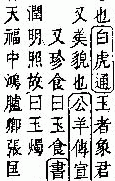 也白虎通王者象君
又美貌也公羊傳宣
又珍食曰玉食書
潤明照故曰玉燭
天福中鴻臚卿張匡